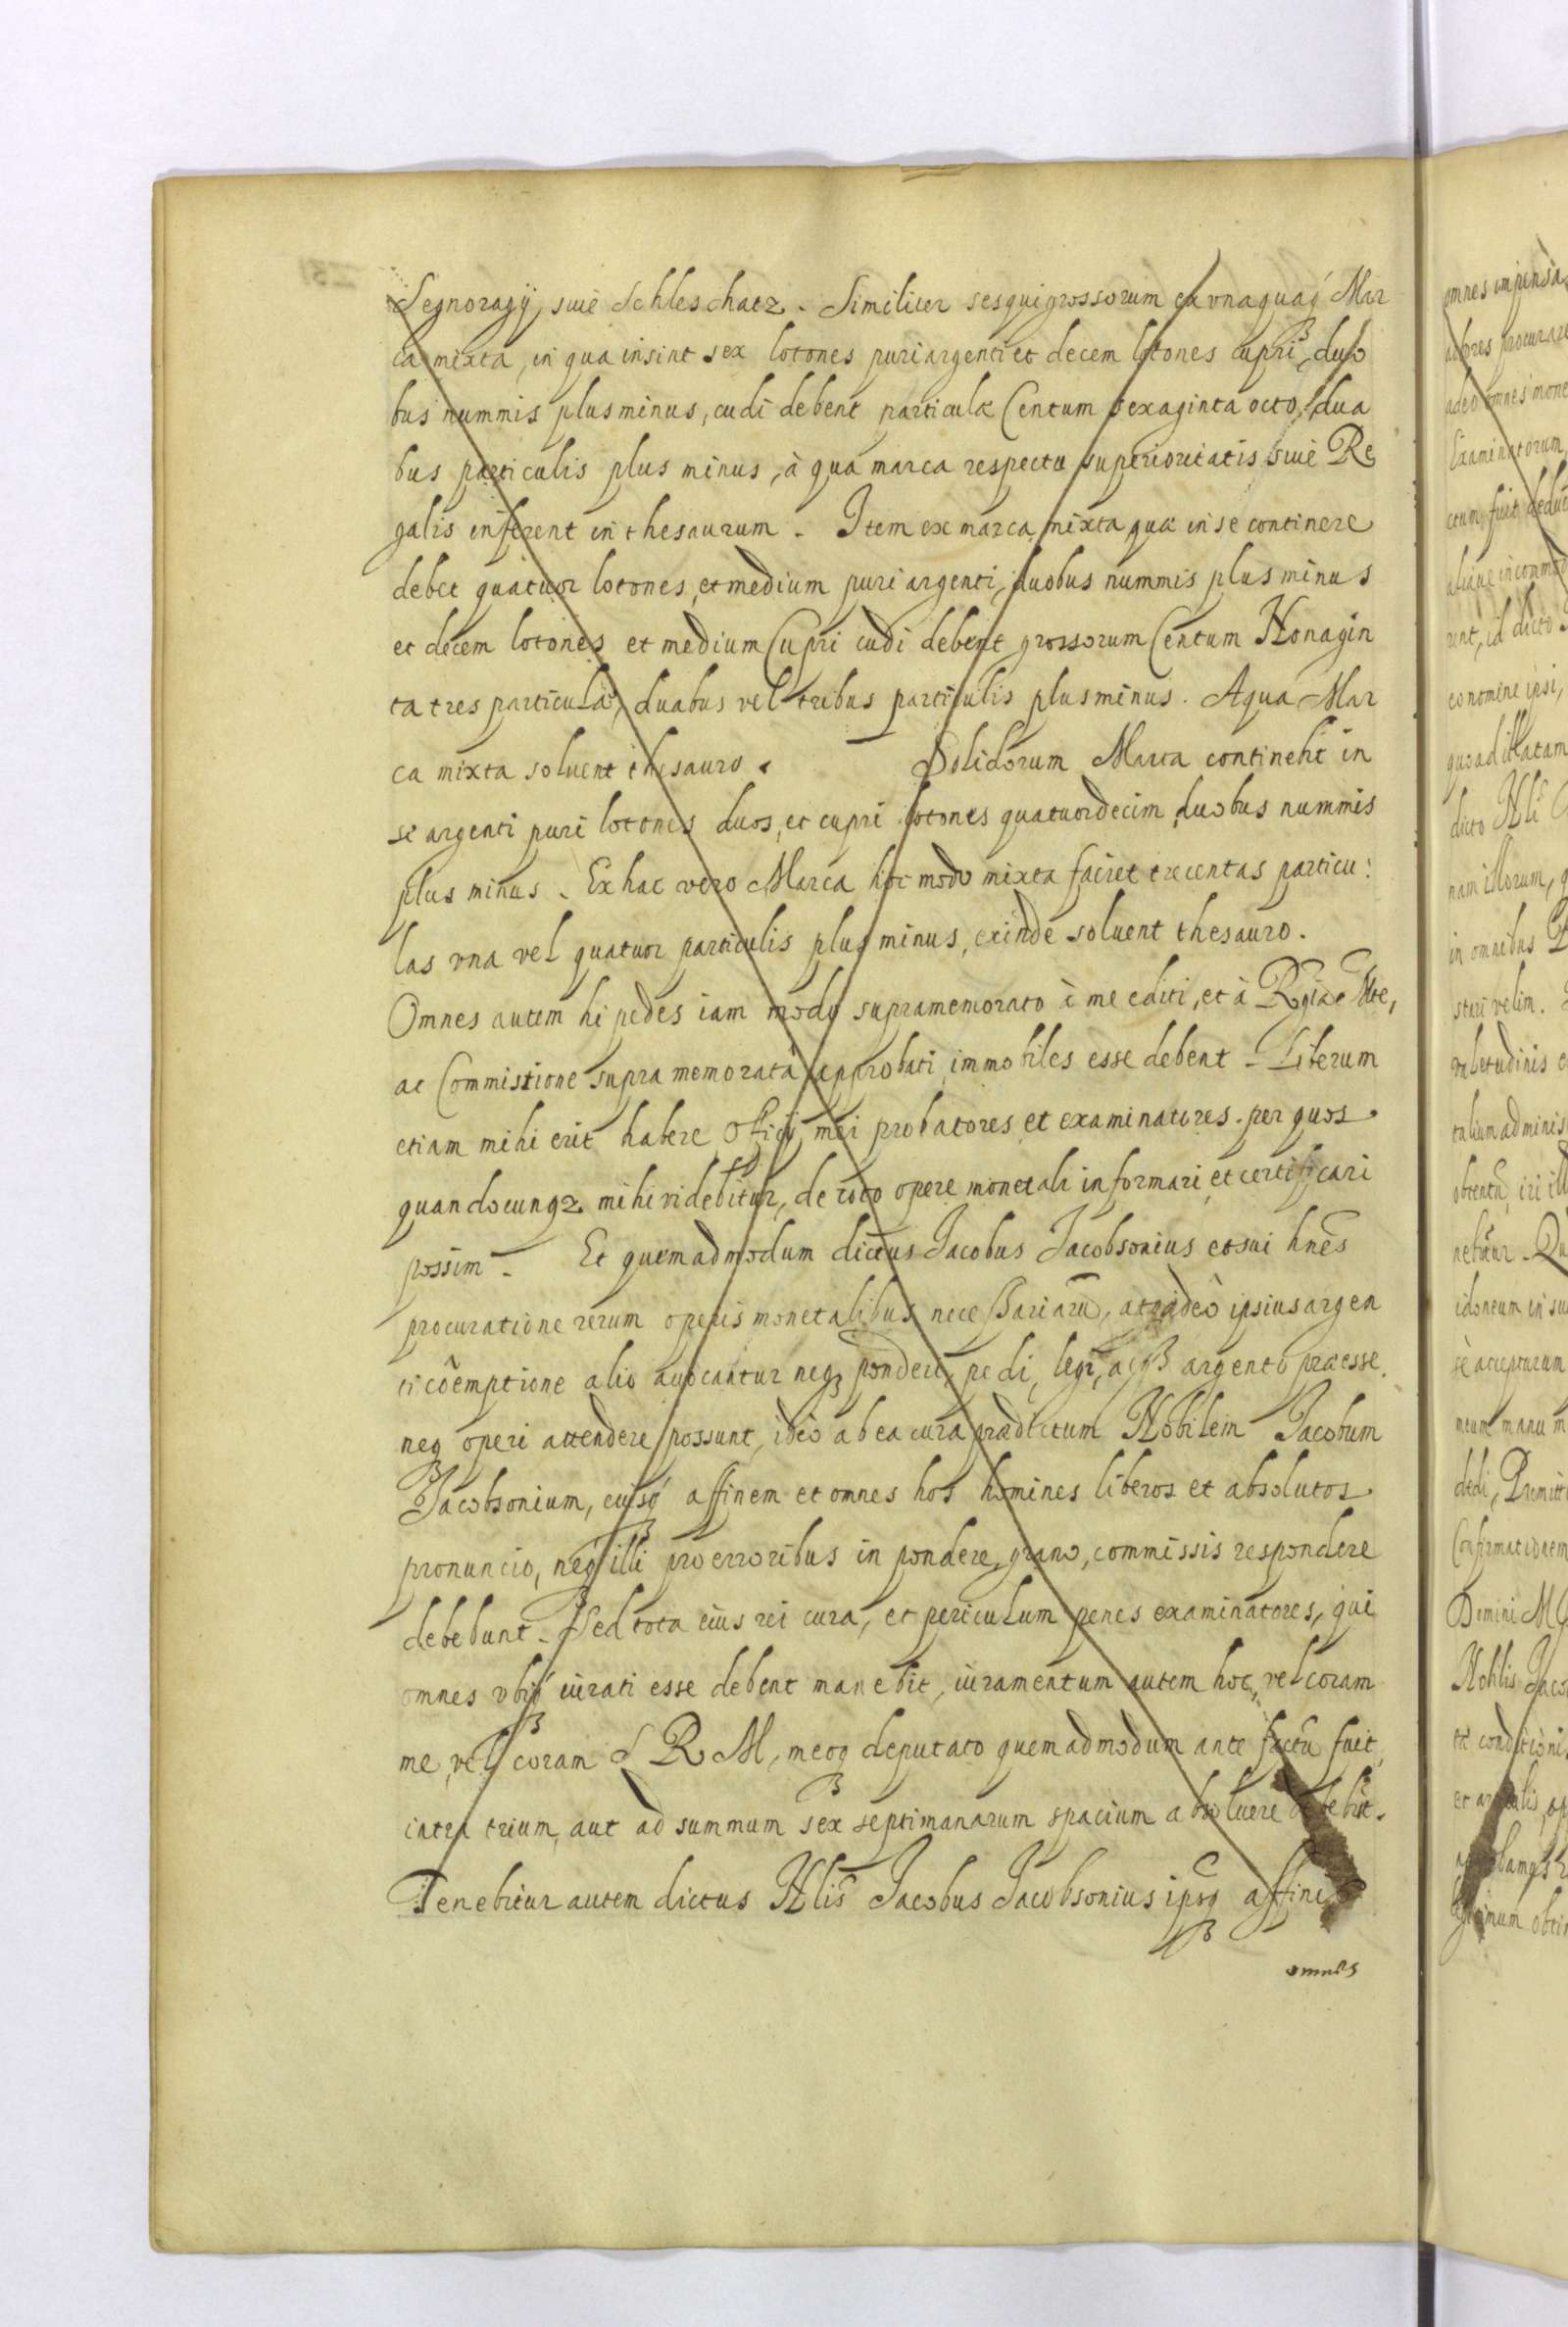 Segnoragÿ, siue Schleschatz. Similiter sesquigrossorum ex vnaquaq Mar
ca mixta, in qua insint sex lotones puri argenti et decem lotones cupri, duo
bus nummis plus minus, cudi debent particulæ Centum sexaginta octo, dua
bus particulis plus minus, à qua marca respectu superioritatis siue Re
galis inferent in thesaurum. Item ex marca mixta quæ in se continere
debet quatuor lotones, et medium puri argenti, duobus nummis plus minus
et decem lotones et medium Cupri cudi debent grossorum Centum Nonagin
ta tres particulæ, duabus vel tribus particulis plus minus. A qua Mar
ca mixta soluent thesauro. Solidorum Marca continebit in
se argenti puri lotones duos, et cupri lotones quatuordecim, duobus nummis
plus minus. Ex hac vero Marca hoc modo mixta faciet trecentas particu:
las vna vel quatuor particulis plus minus, exinde soluent thesauro.
Omnes autem hi pedes iam modo supramemorato à me editi, et à Rgia Mte,
ac Commissione supra memorata approbati immobiles esse debent. Liberum
etiam mihi erit habere Officÿ mei probatores et examinatores. per quos
quandocunqz mihi videbitur, de toto opere monetali informari et certificari
possim. Et quemadmodum dictus Jacobus Jacobsonius et sui hnes
procuratione rerum operis monetalibus necessariarũ, atq adeò ipsius argen
ti cõemptione alio auocantur neqz ponderi, pedi, legi, argento præesse
neq operi attendere possunt, ideò ab ea cura prædictum Nobilem Jacobum
Jacobsonium, eiusq affinem et omnes hos homines liberos et absolutos
pronuncio, neq illi pro erroribus in pondere, grano, commissis respondere
debebunt. Sed tota eius rei cura, et periculum penes examinatores, qui
omnes vbiq iurati esse debent manebit, iuramentum autem hoc, vel coram
me, vel coram S R M, meoq deputato quemadmodum ante factũ fuit,
intra trium, aut ad summum sex septimanarum spacium absoluere debebit.
Tenebitur autem dictus Nlis Jacobus Jacobsonius ipsoq affinis
omnes